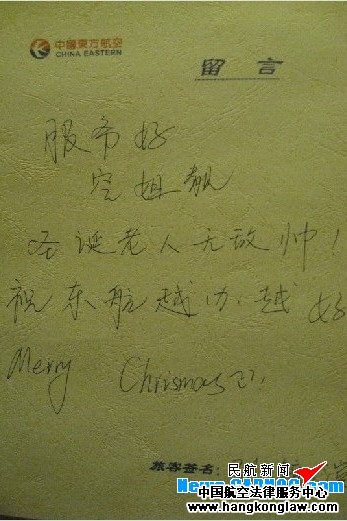 中國東方航空
CHINA EASTERN
留言
服务好
空姐靓
圣诞老人无敌帅！
祝东航越办越好
Merry Chrismas
旅客签名：
民航新闻
News.CARNOC.com
中国航空法律服务中心
www.hongkonglaw.com